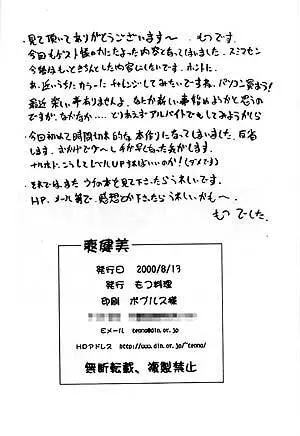 ・見て頂いてありがとうございます〜 もつです。
今回もゲスト様のかたよった内容となってしまいました。スミマセン
今後はもっときちんとした内容にしたいです。ホントに
あ、近いうちにカラーにチャレンジしてみたいですね。パソコン買おう!
最近 楽しい事ありませんよ。なにか新しい事始めようかと思うの
ですが、なかなか…とりあえずアルバイトでもしてみようかしら
・今回初めて時間切れ的な 本作りになってしまいました。反省
します。おかげでケ〜し 手が早くなった気がします。
ナルホド、こうしてレベルUPすればいいのか!(ダメです)
・それではまた ウチの本を見て下さったらうれしいです。
HP、メール等で、感想とか下さったらうれしいかも〜。
もつ でした。
裏健美
発行日 2000/8/13
発行 もつ料理
印刷 ポプルス様
Eメール tenno@din.or.jp
HPアドレス http://www.din.or.jp/~tenno/
無断転載、複製禁止